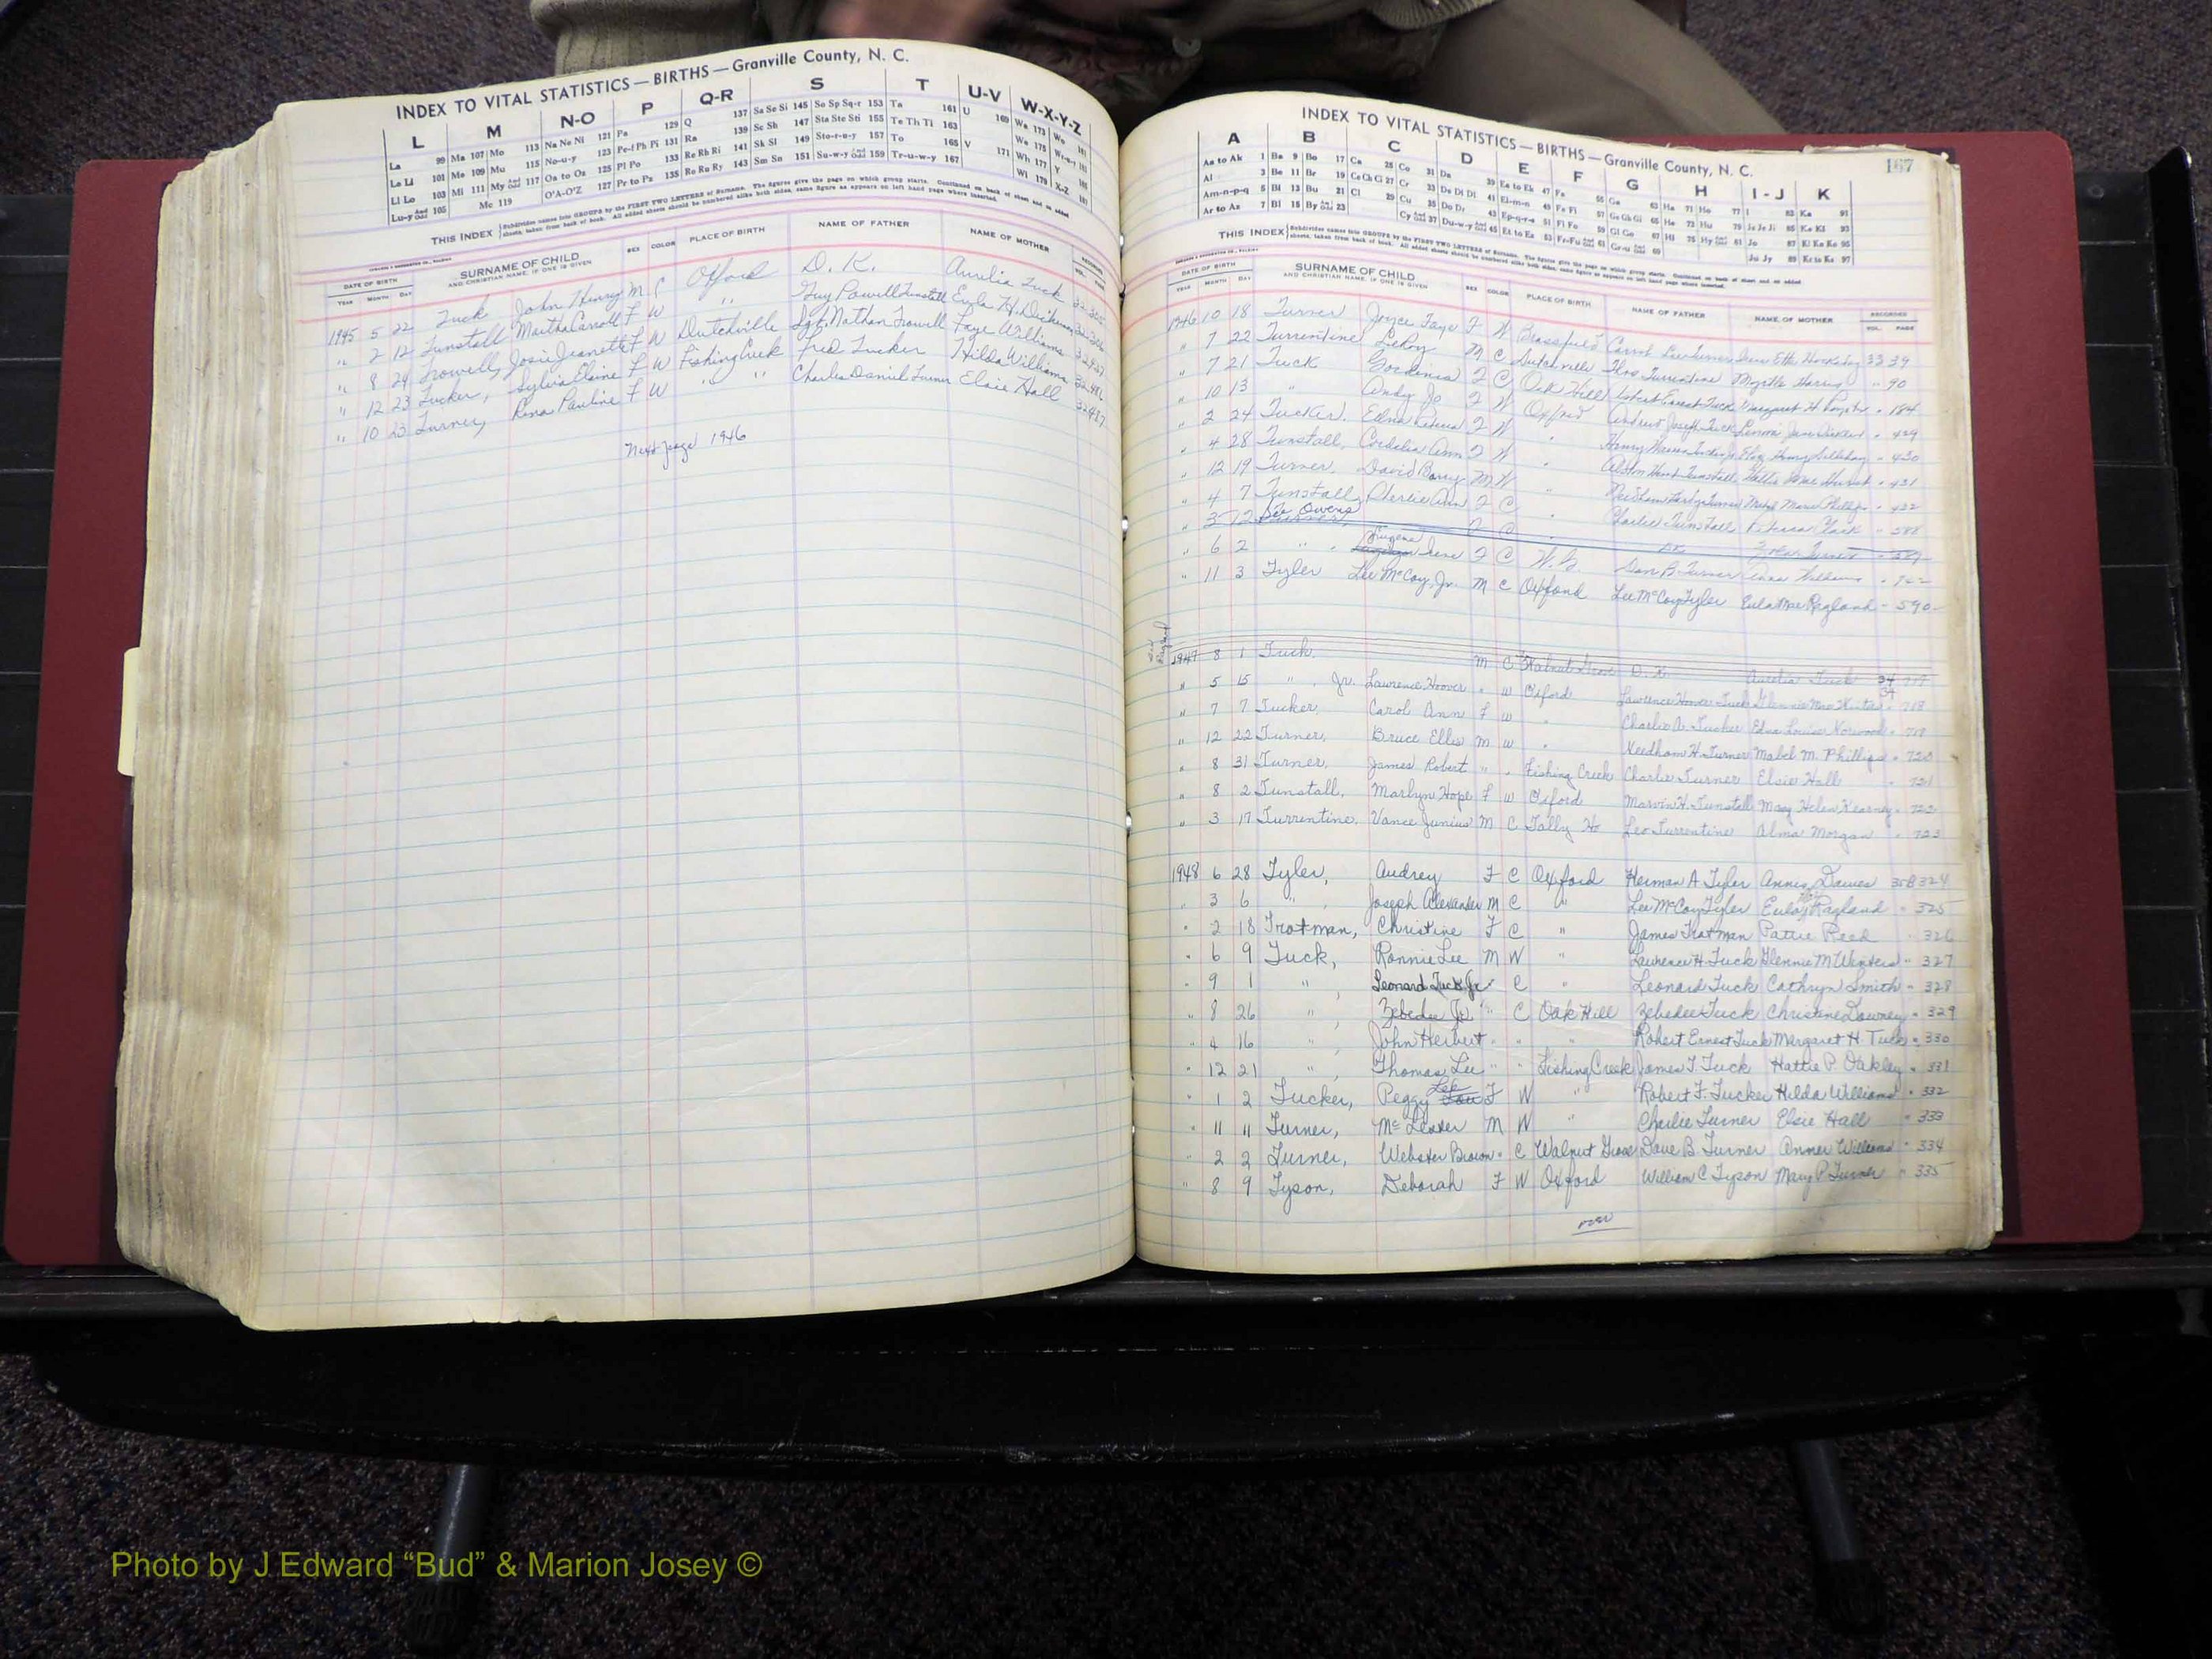 INDEX TO VITAL STATISTICS — BIRTHS — Granville County, N. C.
L M N-O P Q-R S T U-V W-X-Y-Z
La 99 Ma 107 Mo 113 Na Ne Ni 121 Pa 129 Q 137 Sa Se Si 145 So Sp Sq-r 153 Ta 161 U 169 Wa 173 Wo 181
Le Li 101 Me 109 Mu 115 No-u-y 123 Pe-f Ph Pi 131 Ra 139 Sc Sh 147 Sta Ste Sti 155 Te Th Ti 163
Ll Lo 103 Mi 111 My And Odd 117 Oa to Os 125 Pl Po 133 Re Rh Ri 141 Sk Sl 149 Sto-r-u-y 157 To 165 V 171 Wh 177 Y
Lu-y And Odd 105 Mc 119 O'A-O'Z 127 Pr to Ps 135 Ro Ru Ry 143 Sm Sn 151 Su-w-y And Odd 159 Tr-u-w-y 167 Wi 179 X-Z
THIS INDEX Subdivides names into GROUPS by the FIRST TWO LETTERS of Surname. The figures give the page on which group starts. Continued on back of sheet and on added
sheets, taken from back of book. All added sheets should be numbered alike both sides, same figure as appears on left hand page where inserted.
DATE OF BIRTH SURNAME OF CHILD SEX COLOR PLACE OF BIRTH NAME OF FATHER NAME OF MOTHER RECORDED
YEAR MONTH DAY AND CHRISTIAN NAME, IF ONE IS GIVEN VOL. PAGE
1945 5 22 Tuck John Henry M C Oxford D. K. Aurelia Tuck
" 2 12 Tunstall Martha Carroll F W " Guy Powell Tunstall
" 8 24 Trowell, Josie Jeanette F W Dutchville Sgt. Nathan Trowell Faye Williams
" 12 23 Tucker, Sylvia Elaine F W Fishing Creek Fred Tucker Hilda Williams
" 10 23 Turner, Rena Pauline F W " " Charles Daniel Turner Elsie Hall
Next page 1946
INDEX TO VITAL STATISTICS — BIRTHS — Granville County, N. C.
167
A B C D E F G H I - J K
Aa to Ak 1 Ba 9 Bo 17 Ca 25 Co 31 Da 39 Ea to Ek 47 Fa 55 Ga 63 Ha 71 Ho 77 I 83 Ka 91
Al 3 Be 11 Br 19 Ce Ch Ci 27 Cr 33 De Di Dl 41 El-m-n 49 Fe Fi 57 Ge Gh Gi 65 He 73 Hu 79 Ja Je Ji 85 Ke Kf 93
Am-n-p-q 5 Bi 13 Bu 21 Cl 29 Cu 35 Do Dr 43 Ep-q-r-s 51 Fl Fo 59 Gl Go 67 Hi 75 Hy And Odd 81 Jo 87 Ki Kn Ko 95
Ar to Az 7 Bl 15 By And Odd 23 Cy And Odd 37 Du-w-y And Odd 45 Et to Ez 53 Fr-Fu And Odd 61 Gr-u And Odd 69 Ju Jy 89 Kr to Kz 97
THIS INDEX Subdivides names into GROUPS by the FIRST TWO LETTERS of Surname. The figures give the page on which group starts. Continued on back of sheet and on added
sheets, taken from back of book. All added sheets should be numbered alike both sides, same figure as appears on left hand page where inserted.
DATE OF BIRTH SURNAME OF CHILD SEX COLOR PLACE OF BIRTH NAME OF FATHER NAME OF MOTHER RECORDED
YEAR MONTH DAY AND CHRISTIAN NAME, IF ONE IS GIVEN VOL. PAGE
1946 10 18 Turner Joyce Faye F W Brassfield Carrol Lee Turner 33 39
" 7 22 Turrentine LeRoy M C Dutchville Thos Turrentine Myrtle Harris " 90
" 7 21 Tuck F C Oak Hill Robert Ernest Tuck Margaret H. Royster " 184
" 10 13 " Andy Jo F W Oxford Andrew Joseph Tuck " 429
" 2 24 Tucker. Edna F W " " 430
" 4 28 Tunstall, Cordelia Ann F W " " 431
" 12 19 Turner, David Barry M W " Needham Turner Mabel Marie Phillips " 432
" 4 7 Tunstall, F C " Charlie Tunstall Rebecca " 588
" 3 12 See Owens F C " Turner " 589
" 6 2 " , Eugene Irene F C W. G. Dan B Turner Anna Williams
" 11 3 Tyler Lee McCoy, Jr. M C Oxford Lee McCoy Tyler Eula Mae Ragland " 590
1947 8 1 Tuck. M C Walnut Grove D. K. Aurelia Tuck 34
" 5 15 " , Jr. Lawrence Hoover " W Oxford Lawrence Hoover Tuck " 718
" 7 7 Tucker, Carol Ann F W " Charlie A. Tucker Edna Louise Norwood " 719
" 12 22 Turner, Bruce Ellis M W " Needham H. Turner Mabel M. Phillips " 720
" 8 31 Turner, James Robert " " Fishing Creek Charlie Turner Elsie Hall " 721
" 8 2 Tunstall, Marlyn Hope F W Oxford Marvin H. Tunstall Mary Helen Kearney " 722
" 3 17 Turrentine, Vance Junius M C Tally Ho Leo Turrentine Alma Morgan " 723
1948 6 28 Tyler, Audrey F C Oxford Herman A Tyler Annie Dawes 324
" 3 6 " , Joseph Alexander M C " Lee McCoy Tyler Eula Ragland " 325
" 2 18 Trotman, Christine F C " James Trotman Pattie Reed " 326
" 6 9 Tuck, Ronnie Lee M W " Lawrence H. Tuck Glennie M Winters " 327
" 9 1 " , Leonard Tuck Jr " C " Leonard Tuck Cathryn Smith " 328
" 8 26 " , Zebedee Jr. " C Oak Hill Zebedee Tuck Christine Downey " 329
" 4 16 " , John Herbert " " " Robert Ernest Tuck Margaret H. Tuck " 330
" 12 21 " , Thomas Lee " " Fishing Creek James T. Tuck Hattie P Oakley " 331
" 1 2 Tucker, Peggy Lee Lou F W " Robert F. Tucker Hilda Williams " 332
" 11 11 Turner, M W " Charlie Turner Elsie Hall " 333
" 2 2 Turner, Webster Brown " C Walnut Grove Dave B Turner Annie Williams " 334
" 8 9 Tyson, Deborah F W Oxford William C Tyson Mary P Turner " 335
over
Photo by J Edward “Bud” & Marion Josey ©